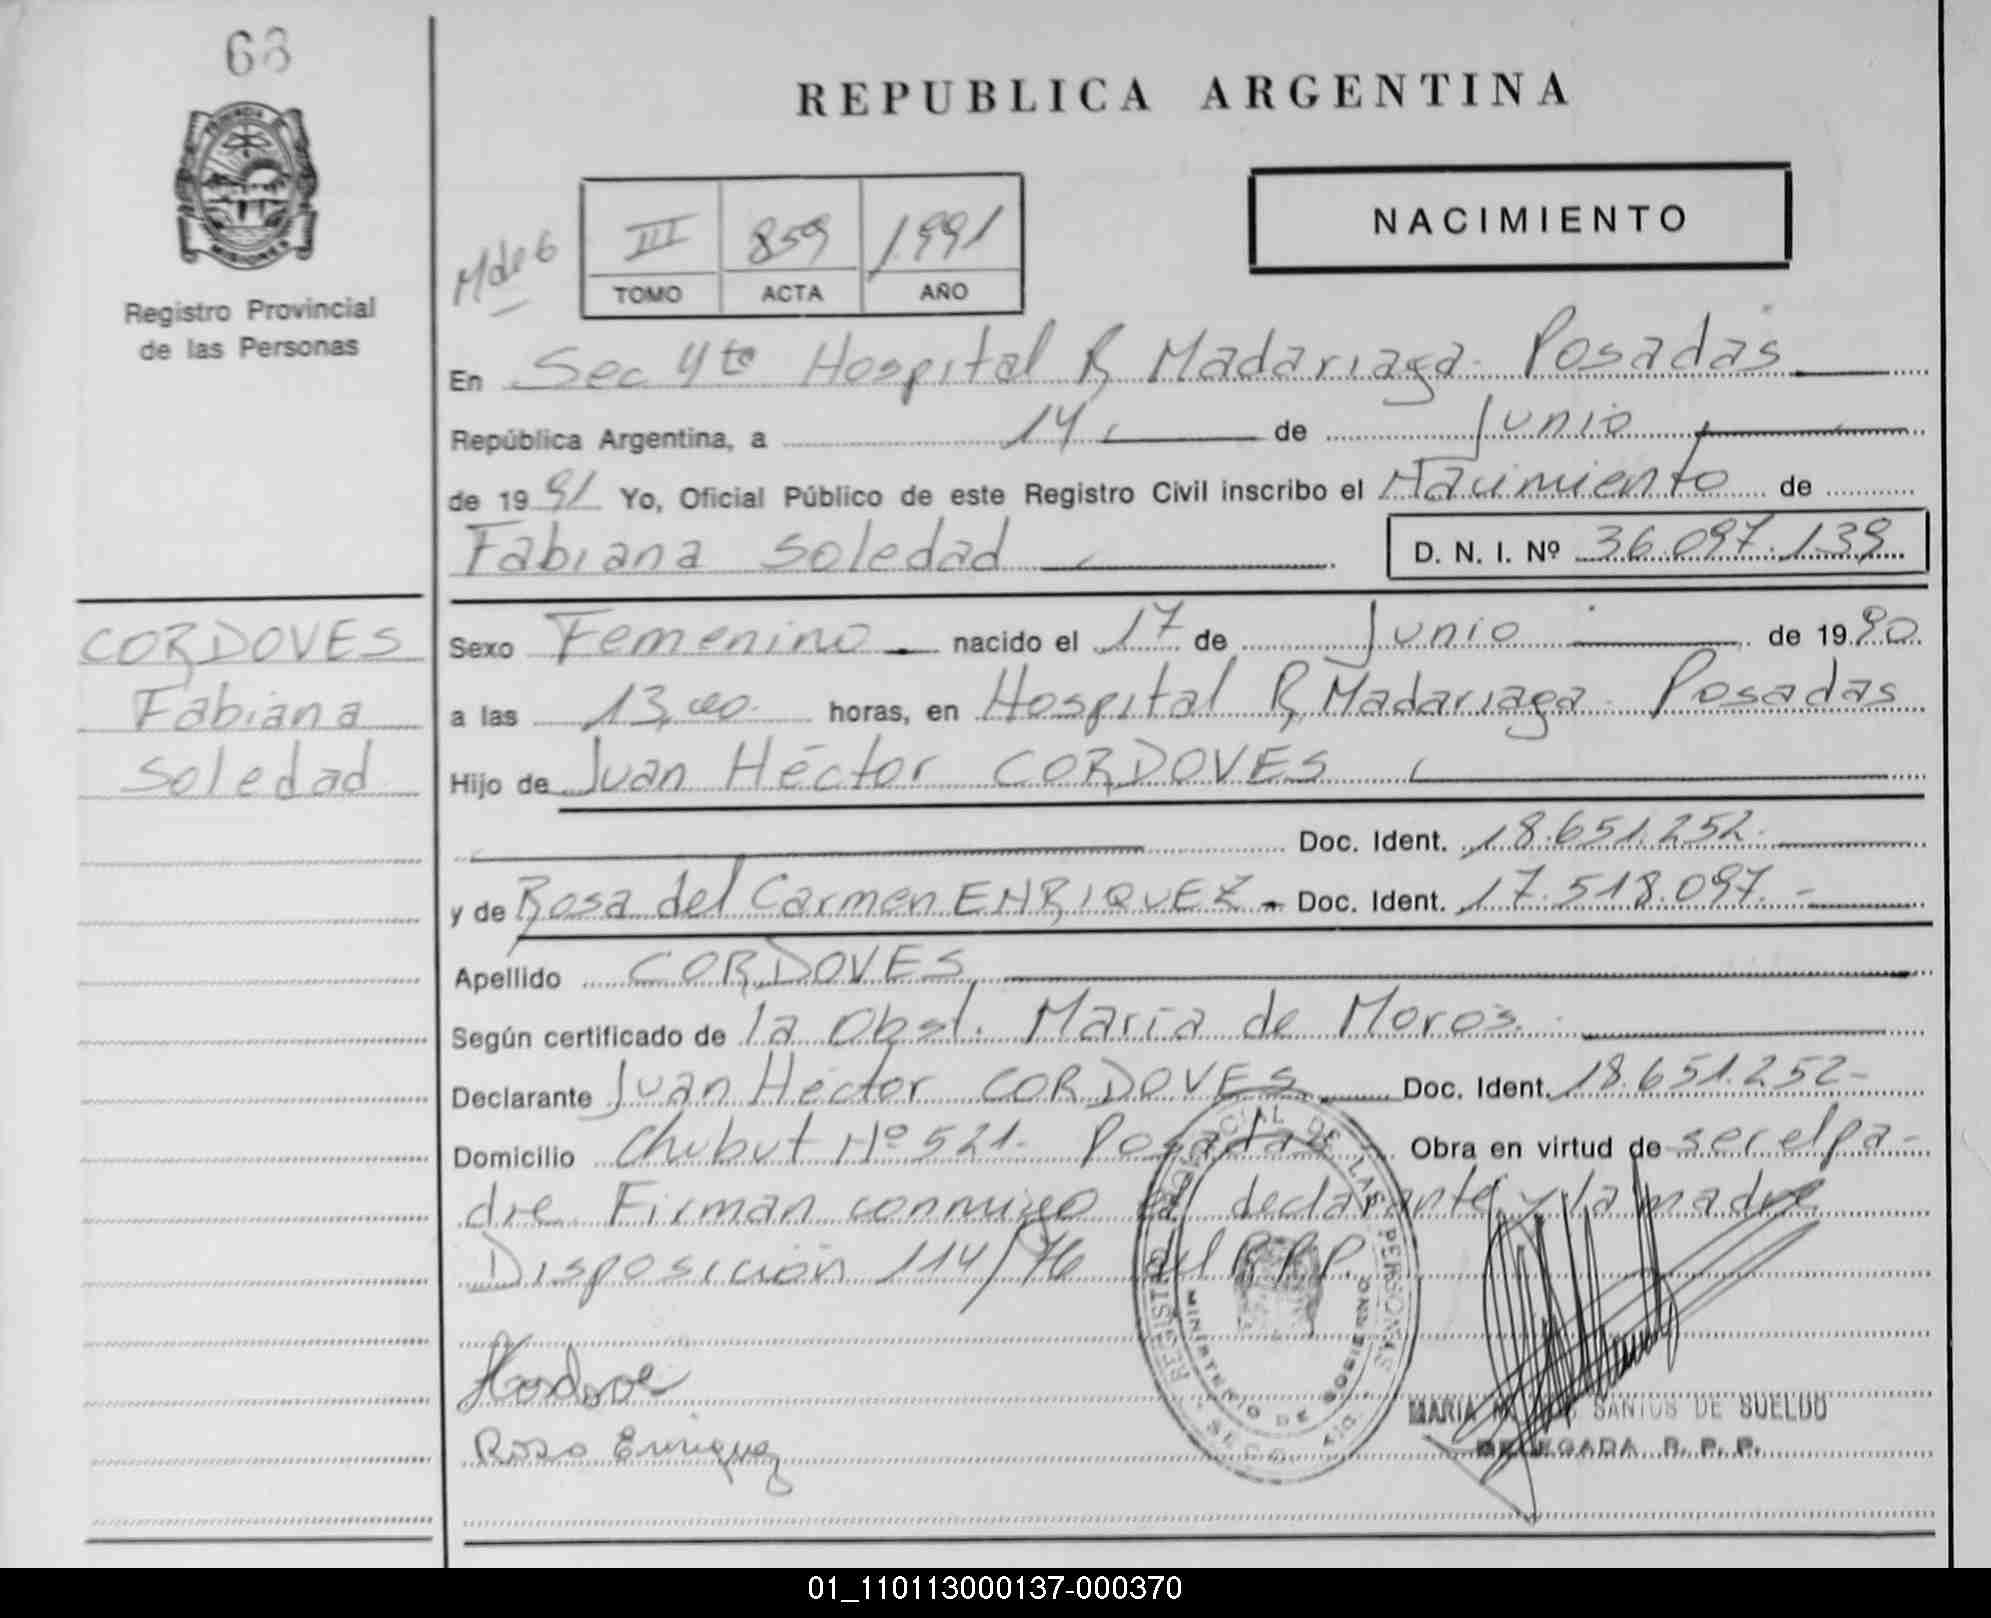 68
REPUBLICA ARGENTINA
PROVINCIA DE
MISIONES
Registro Provincial
de las Personas
NACIMIENTO
III 859 1991
TOMO ACTA AÑO
En Sec 4ta Hospital R, Madariaga. Posadas
República Argentina, a 14 de Junio
de 1991 Yo, Oficial Público de este Registro Civil inscribo el Nacimiento de
Fabiana Soledad D. N. I. Nº 36.097.139
CORDOVES
Fabiana
Soledad
Sexo Femenino nacido el 17 de Junio de 1990
a las 13,00. horas, en Hospital R, Madariaga. Posadas
Hijo de Juan Héctor CORDOVES
Doc. Ident. 18.651.252.
y de Rosa del Carmen ENRIQUEZ - Doc. Ident. 17.518.097.-
Apellido CORDOVES
Según certificado de la Obst. María de Moros.
Declarante Juan Héctor CORDOVES Doc. Ident. 18.651.252-
Domicilio Chubut Nº 521. Posadas Obra en virtud de ser el pa-
dre. Firman conmigo el declarante y la madre
Disposición 114/76 del R.P.P.
REGISTRO PROVINCIAL DE LAS PERSONAS
MINISTERIO DE GOBIERNO
Rosa Enriquez
MARIA SANTOS DE SUELDO
DELEGADA R. P. P.
01_110113000137-000370